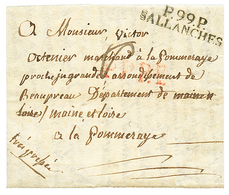 P.99.P
SALLANCHES
A Monsieur, Victor
marchand à la Pommeraye
proche jugrande arrondissement de
Beaupreau Département de maine et
loire / maine et loire
a la Pommeraye